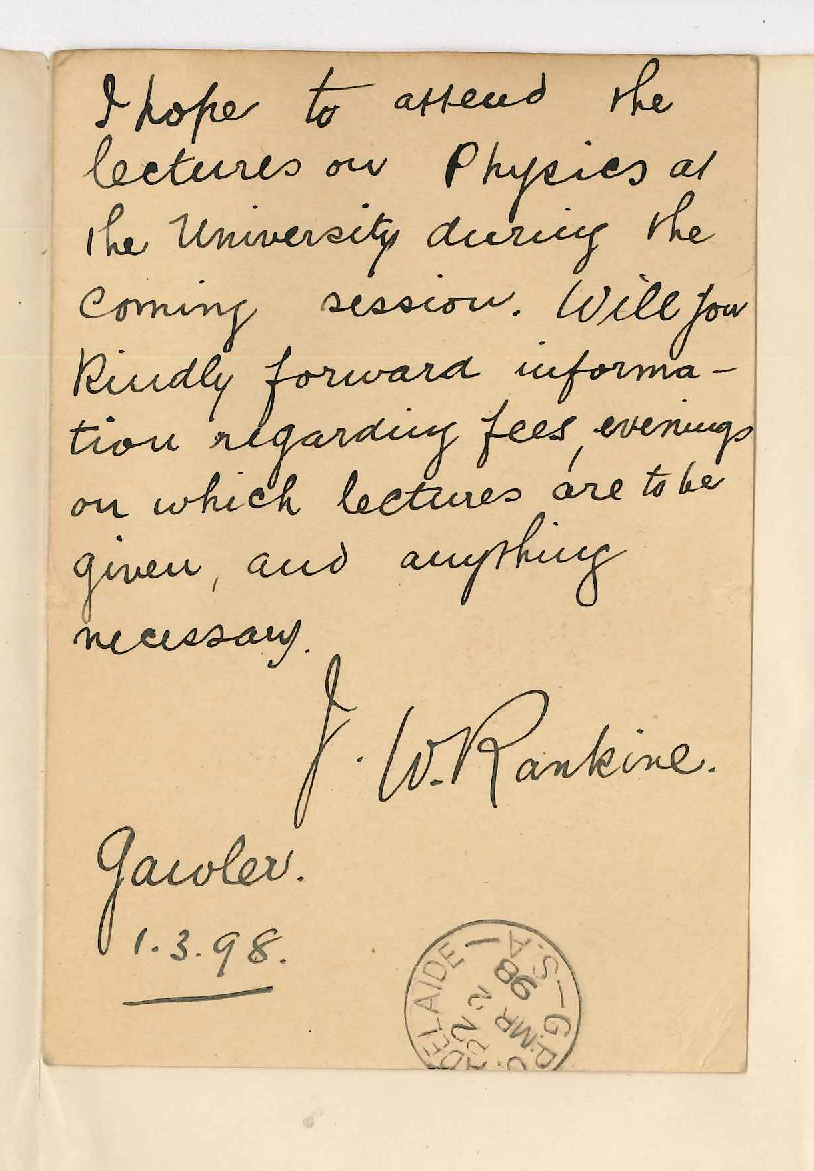 I hope to attend the
lectures on Physics at
the University during the
coming session. Will you
kindly forward informa-
tion regarding fees, evenings
on which lectures are to be
given, and anything
necessary.
J. W. Rankine.
Gawler.
1.3.98.
ADELAIDE — S.A. — G.P.O.
MR 2
98